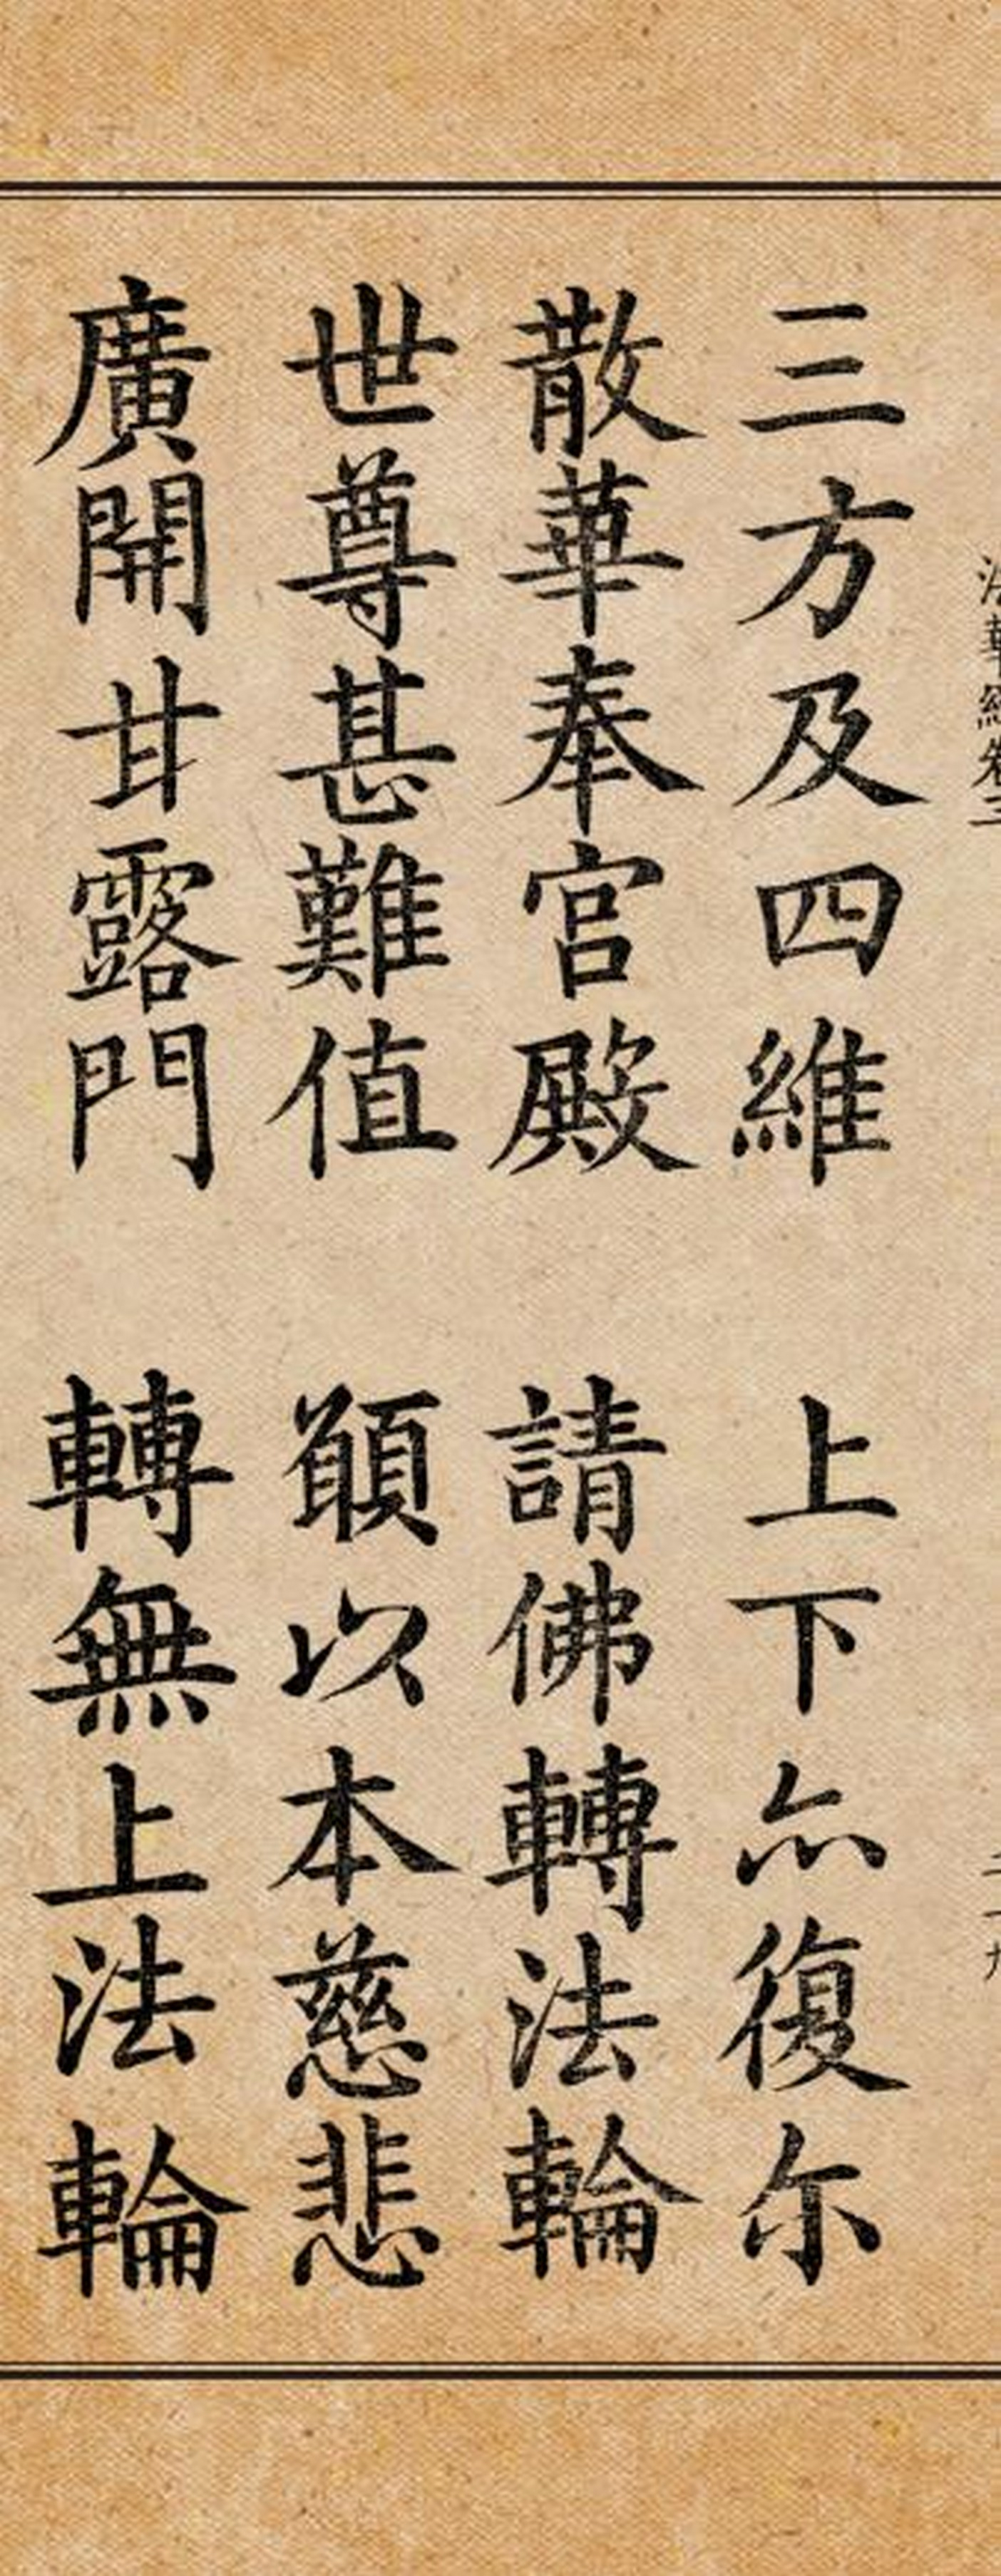 法華經卷三
三方及四維 上下亦復尒
散華奉宮殿 請佛轉法輪
世尊甚難值 願以本慈悲
廣開甘露門 轉無上法輪